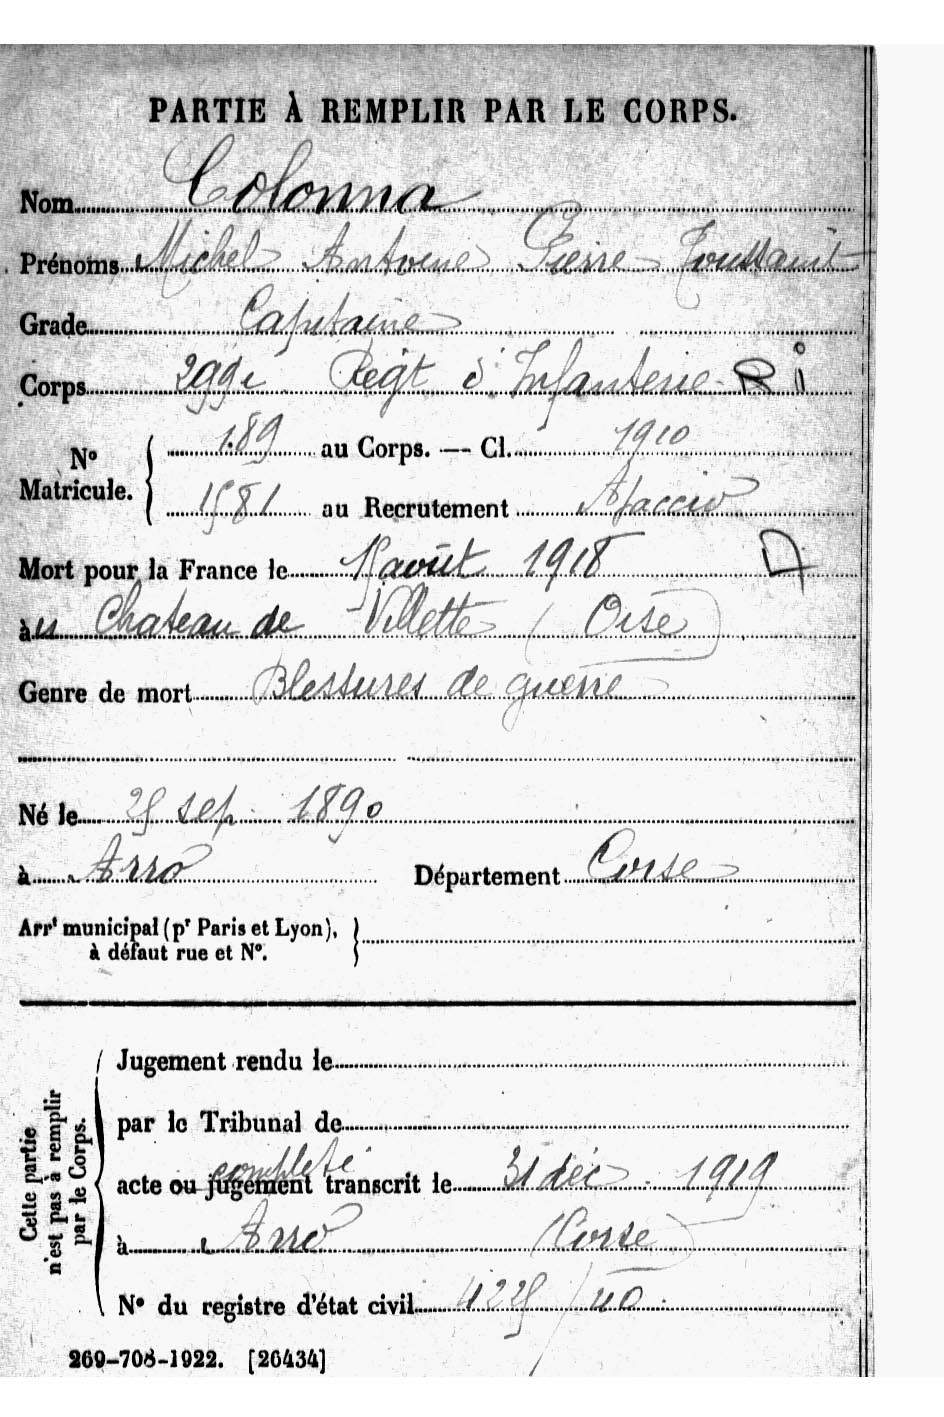 PARTIE À REMPLIR PAR LE CORPS.
Nom Colonna
Prénoms Michel Antoine Pierre Toussaint
Grade Capitaine
Corps 299e Régt d'Infanterie R i
N° Matricule.
189 au Corps. — Cl. 1910
1581 au Recrutement Ajaccio
Mort pour la France le 15 août 1918
à u Chateau de Villette (Oise)
Genre de mort Blessures de guerre
Né le 25 sep. 1890
à Arro Département Corse
Arrt municipal (pr Paris et Lyon),
à défaut rue et N°.
Cette partie
n'est pas à remplir
par le Corps.
Jugement rendu le
par le Tribunal de
complété
acte ou jugement transcrit le 31 déc. 1919
à Arro (Corse)
N° du registre d'état civil 4225/40.
269-708-1922. [26434]